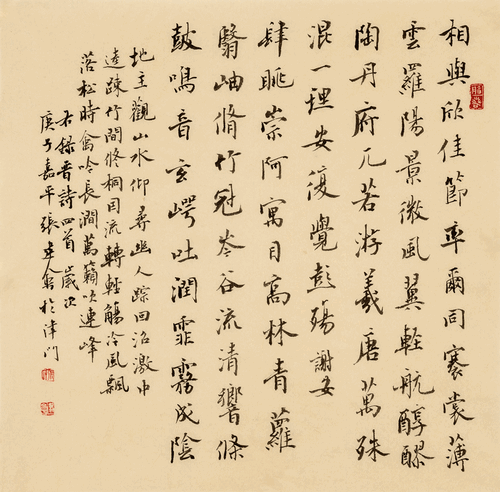 相與欣佳節率爾同褰裳薄
雲羅陽景微風翼輕航醇醪
陶丹府兀若游羲唐萬殊
混一理安復覺彭殤 謝安
肆眺崇阿寓目高林青蘿
翳岫脩竹冠岑谷流清響條
鼓鳴音玄崿吐潤霏霧成陰
地主觀山水仰尋幽人踪回沼激中
逵疎竹間修桐因流轉輕觴冷風飄
落松時禽吟長澗萬籟吹連峰
右錄晉詩四首歲次
庚子嘉平張建會於津門